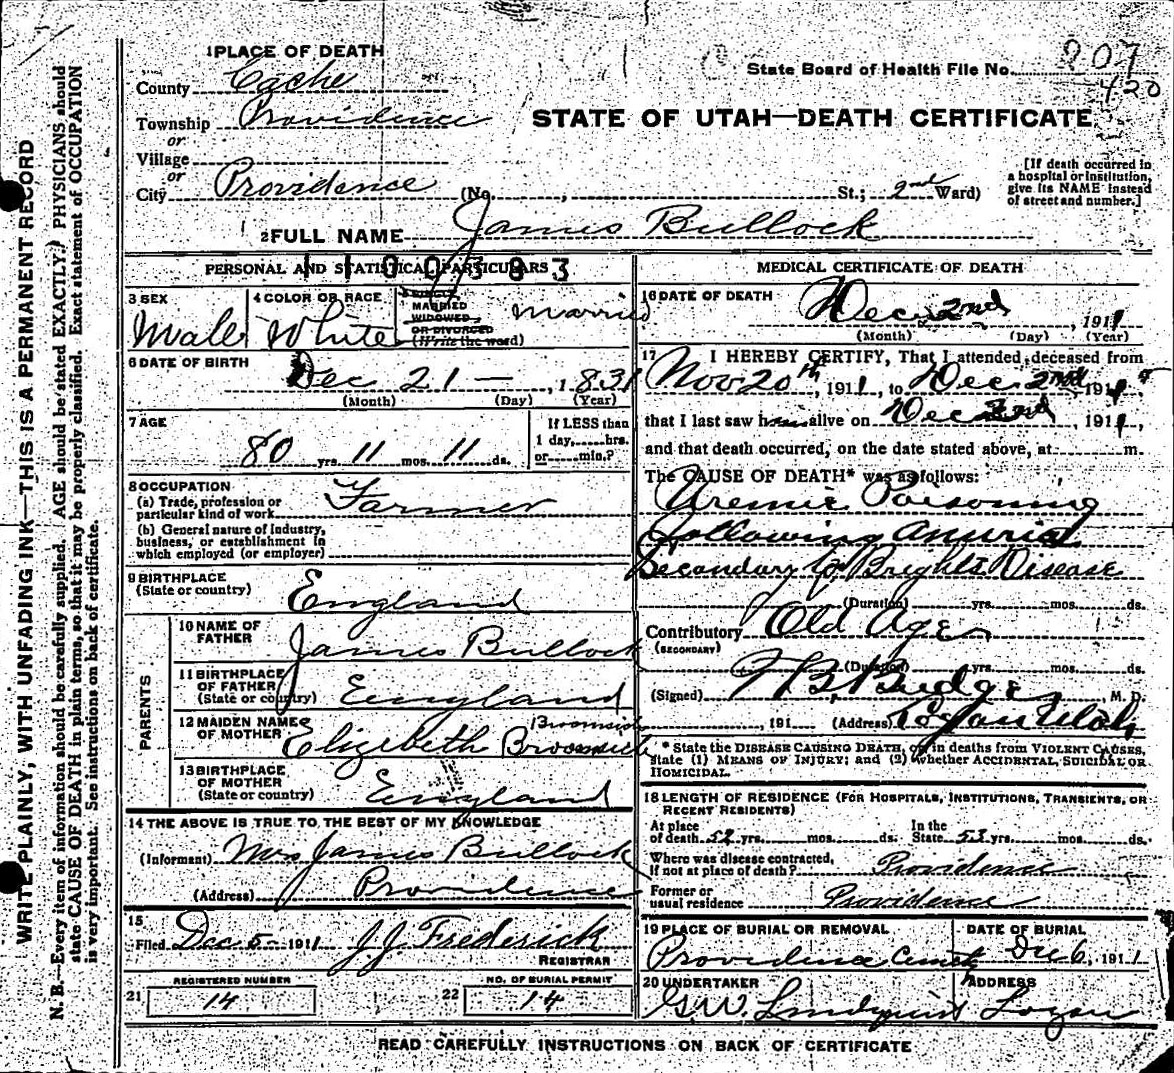 1 PLACE OF DEATH
County Cache
Township Providence
or
Village
or
City Providence (No. , St.; 2nd Ward)
State Board of Health File No. 207
420
STATE OF UTAH—DEATH CERTIFICATE
[If death occurred in
a hospital or institution,
give its NAME instead
of street and number.]
2 FULL NAME James Bullock
PERSONAL AND STATISTICAL PARTICULARS
1100383
3 SEX
Male
4 COLOR OR RACE
White
SINGLE
MARRIED
WIDOWED
OR DIVORCED
(Write the word)
married
6 DATE OF BIRTH
Dec 21 — , 1831
(Month) (Day) (Year)
7 AGE
80 yrs. 11 mos. 11 ds.
If LESS than
1 day, hrs.
or min.?
8 OCCUPATION
(a) Trade, profession or
particular kind of work Farmer
(b) General nature of industry,
business, or establishment in
which employed (or employer)
9 BIRTHPLACE
(State or country) England
PARENTS
10 NAME OF
FATHER James Bullock
11 BIRTHPLACE
OF FATHER
(State or country) England
12 MAIDEN NAME
OF MOTHER Elizabeth
13 BIRTHPLACE
OF MOTHER
(State or country) England
14 THE ABOVE IS TRUE TO THE BEST OF MY KNOWLEDGE
(Informant) Mrs James Bullock
(Address) Providence
15
Filed Dec 5 - 1911 J.J. Frederick
REGISTRAR
REGISTERED NUMBER
21 14
NO. OF BURIAL PERMIT
22 14
MEDICAL CERTIFICATE OF DEATH
16 DATE OF DEATH
Dec 2nd , 1911
(Month) (Day) (Year)
17 I HEREBY CERTIFY, That I attended deceased from
Nov 20th, 1911, to Dec 2nd 1911
that I last saw him alive on Dec 2nd, 1911,
and that death occurred, on the date stated above, at m.
The CAUSE OF DEATH* was as follows:
Uremic Poisoning
Following anuria
Secondary to Brights Disease
(Duration) yrs. mos. ds.
Contributory Old Age
(SECONDARY)
(Duration) yrs. mos. ds.
(Signed) Budge, M. D.
, 191 (Address) Logan Utah
* State the DISEASE CAUSING DEATH, or in deaths from VIOLENT CAUSES,
state (1) MEANS OF INJURY; and (2) whether ACCIDENTAL, SUICIDAL OR
HOMICIDAL.
18 LENGTH OF RESIDENCE (FOR HOSPITALS, INSTITUTIONS, TRANSIENTS, OR
RECENT RESIDENTS)
At place
of death 52 yrs. mos. ds. In the
State 53 yrs. mos. ds.
Where was disease contracted,
if not at place of death? Providence
Former or
usual residence Providence
19 PLACE OF BURIAL OR REMOVAL
Providence Cemetery
DATE OF BURIAL
Dec 6, 1911
20 UNDERTAKER
G.W. Lindquist
ADDRESS
Logan
READ CAREFULLY INSTRUCTIONS ON BACK OF CERTIFICATE
WRITE PLAINLY, WITH UNFADING INK—THIS IS A PERMANENT RECORD
N. B.—Every item of information should be carefully supplied. AGE should be stated EXACTLY. PHYSICIANS should
state CAUSE OF DEATH in plain terms, so that it may be properly classified. Exact statement of OCCUPATION
is very important. See instructions on back of certificate.